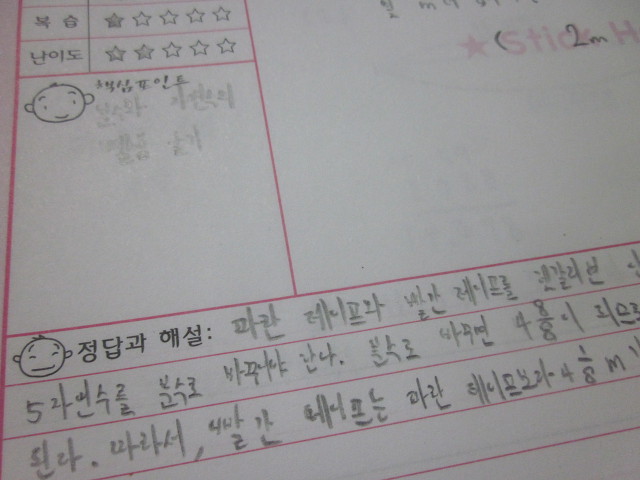 복습 ★☆☆☆☆
난이도 ☆☆☆☆☆
(2m
★Stick H
핵심포인트
분수와 자연수의
정답과 해설: 파란 테이프와 빨간 테이프를 헷갈리면
5 자연수를 분수로 바꾸어야 한다. 분수로 바꾸면 4 8/8이 되므로
된다. 따라서, 빨간 테이프는 파란 테이프보다 4 1/8 m